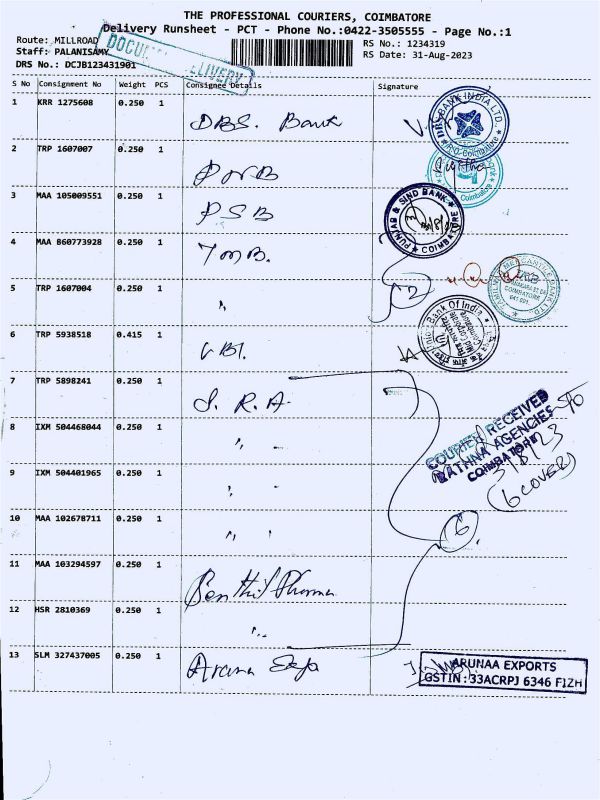 THE PROFESSIONAL COURIERS, COIMBATORE
Delivery Runsheet - PCT - Phone No.:0422-3505555 - Page No.:1
Route: MILLROAD
Staff: PALANISAMY
DRS No.: DCJB123431901
RS No.: 1234319
RS Date: 31-Aug-2023
S No Consignment No Weight PCS Consignee Details Signature
1 KRR 1275608 0.250 1 DBS. Bank
DBS BANK INDIA LTD.
Coimbatore
2 TRP 1607007 0.250 1 PNB
Coimbatore
3 MAA 105009551 0.250 1 PSB
PUNJAB & SIND BANK
COIMBATORE
4 MAA 860773928 0.250 1 TMB.
5 TRP 1607004 0.250 1 "
TAMILNAD MERCANTILE BANK LTD
COIMBATORE
641 001
6 TRP 5938518 0.415 1 UBI.
Union Bank Of India
7 TRP 5898241 0.250 1 S. R. A.
8 IXM 504468044 0.250 1 " -
COURIER RECEIVED
RATHNA AGENCIES
COIMBATORE
(6 COVER)
9 IXM 504401965 0.250 1 "
10 MAA 102678711 0.250 1 "
6.
11 MAA 103294597 0.250 1 Senthil Pharma
12 HSR 2810369 0.250 1 "
13 SLM 327437005 0.250 1 Aruna
ARUNAA EXPORTS
GSTIN:33ACRPJ 6346 F1ZH